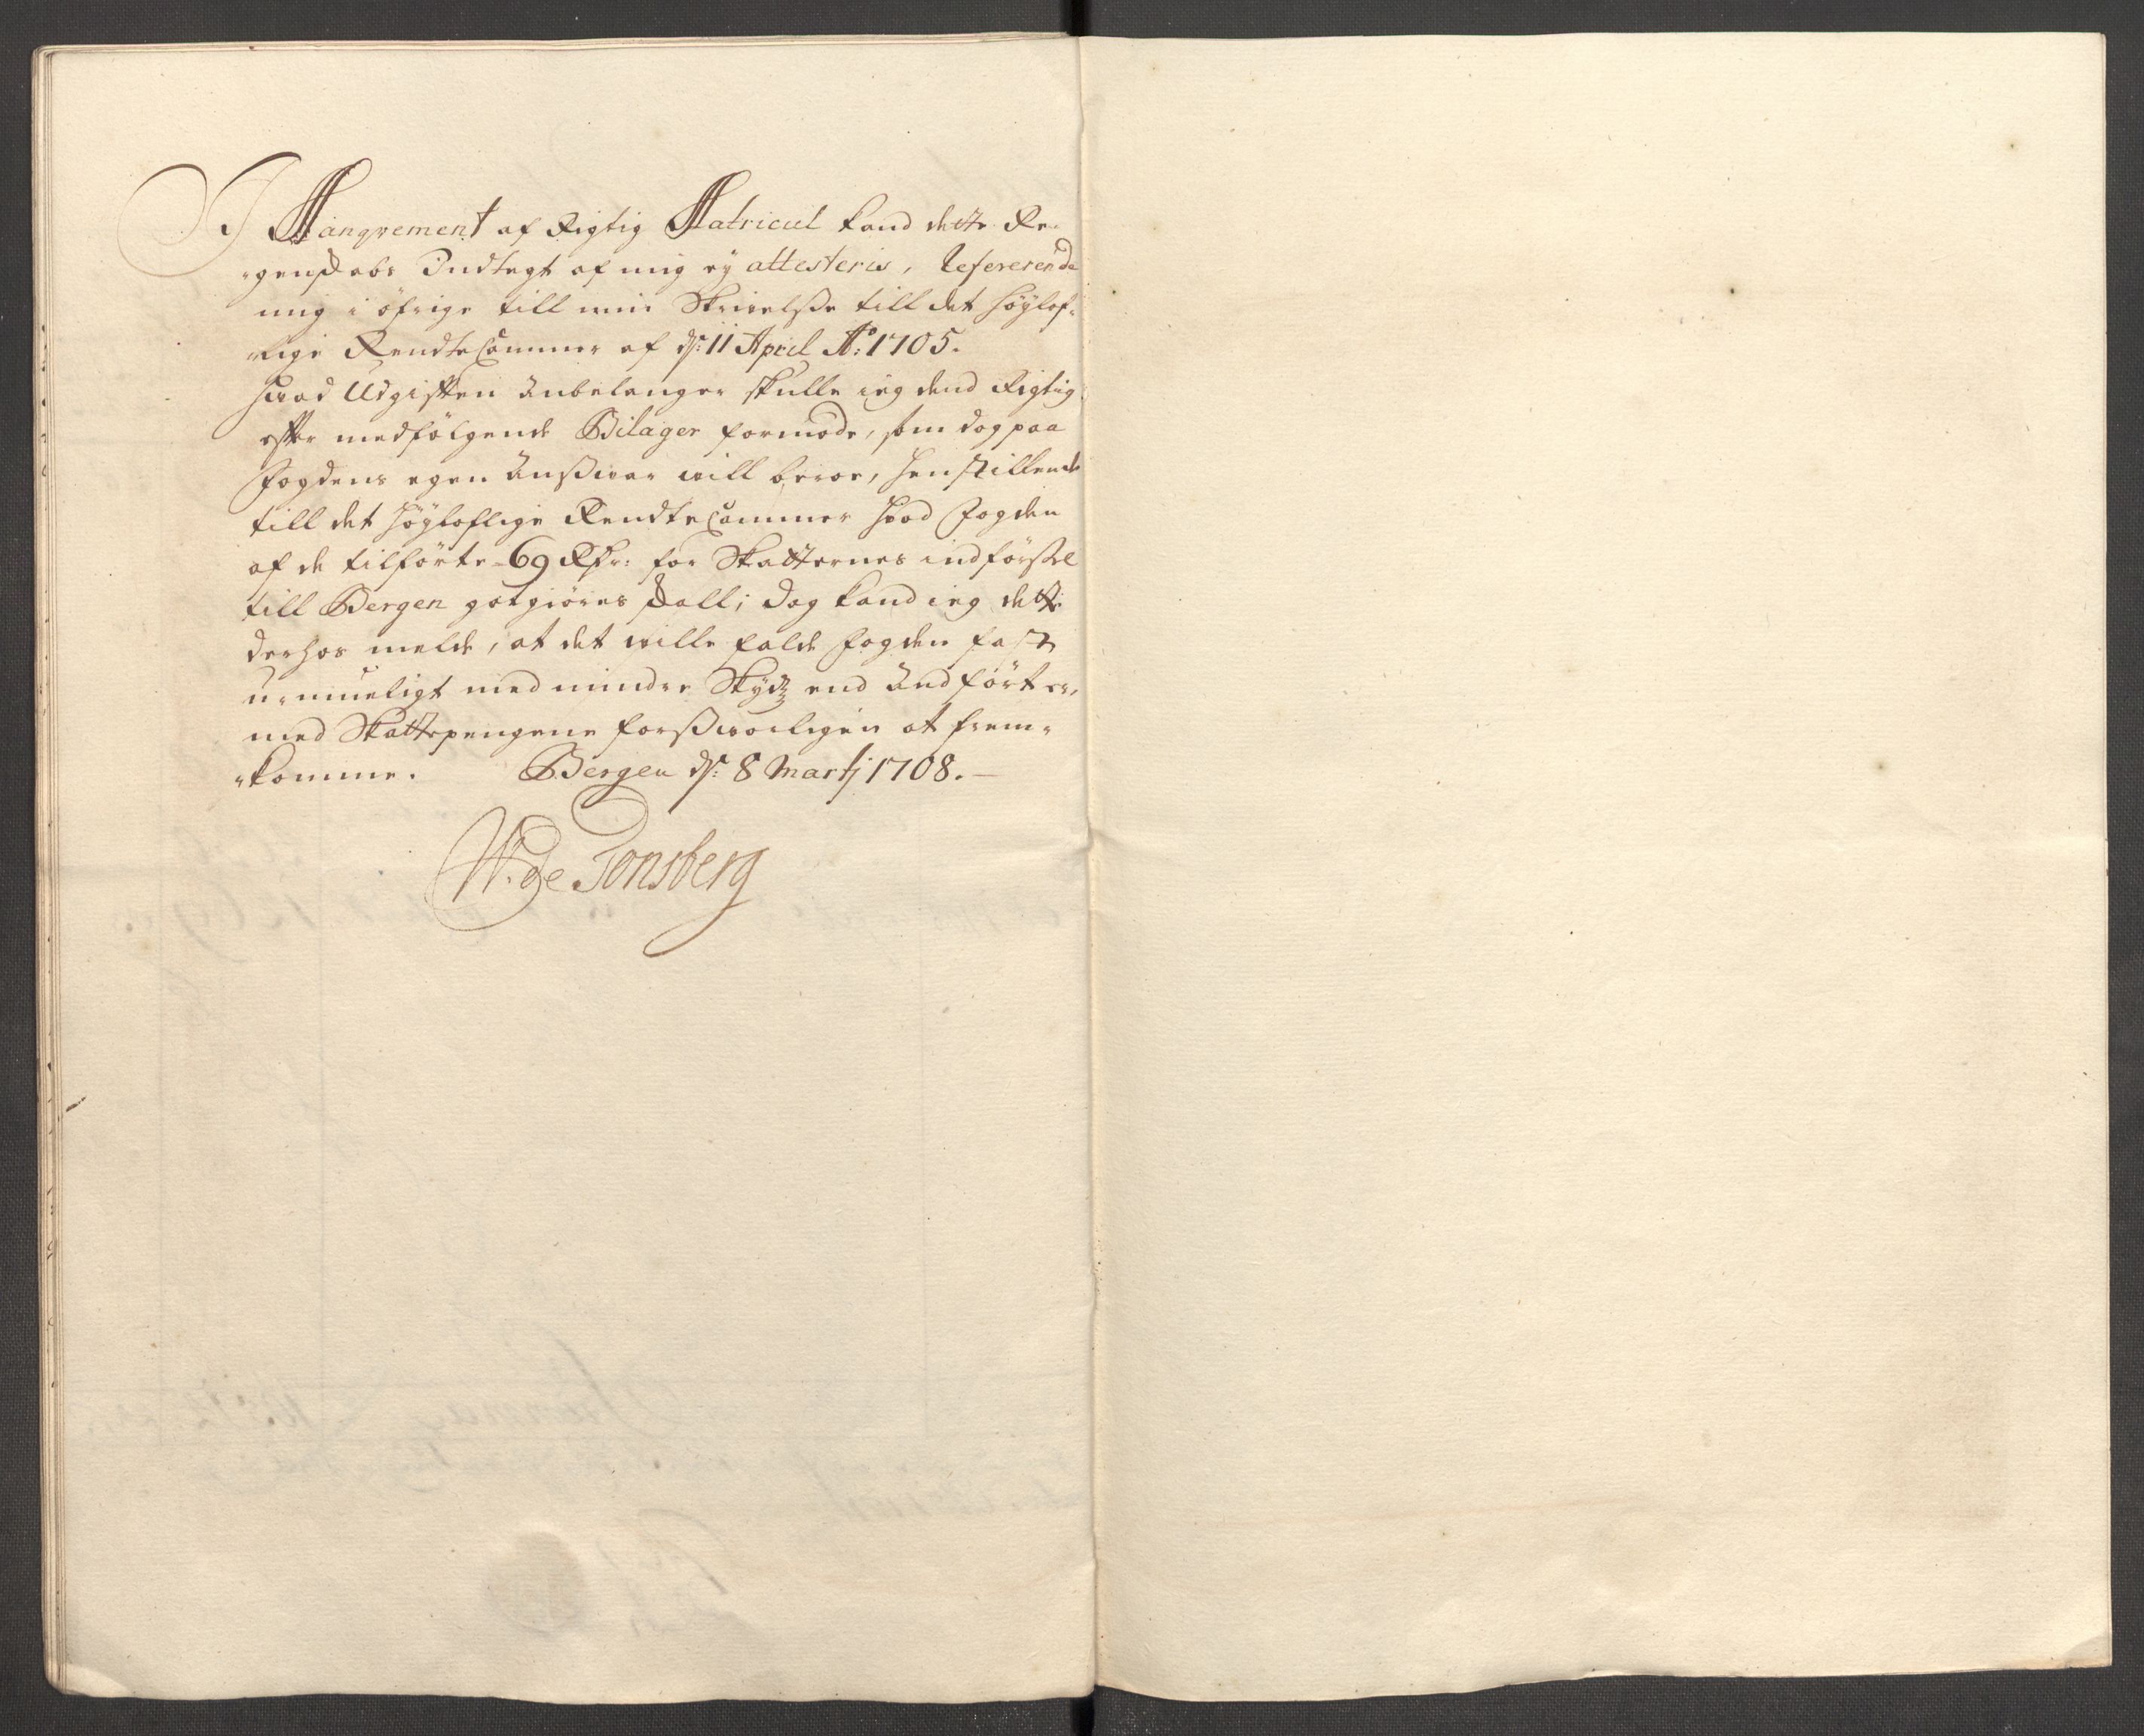 I Manqvement af Rigtig Matricul kand dette Re-
-genskabs Indtegt af mig ej attesteris, Refererende
mig i öfrige till min Skrivelsse till det Höÿlof-
-lige RendteCammer af ds: 11 April Ao: 1705.
Hvad Udgiften anbelanger skulle ieg dend Rigtig
efter medfölgende Bilager formode, som dog paa
Fogdens egen ansswar will beroe, henstillende
till det höÿloflige RendteCammer hvad Fogden
af de tilförte 69 Rdr: for Skatternes indførssel
till Bergen gotgiöres skall; dog kand ieg dette
derhos melde, at det wille falde Fogden fast
u-mueligt med mindre Skÿdz end andført er,
med Skattepengene forsswarligen at frem-
-komme. Bergen ds: 8 Martj 1708.
W. de Tonsberg